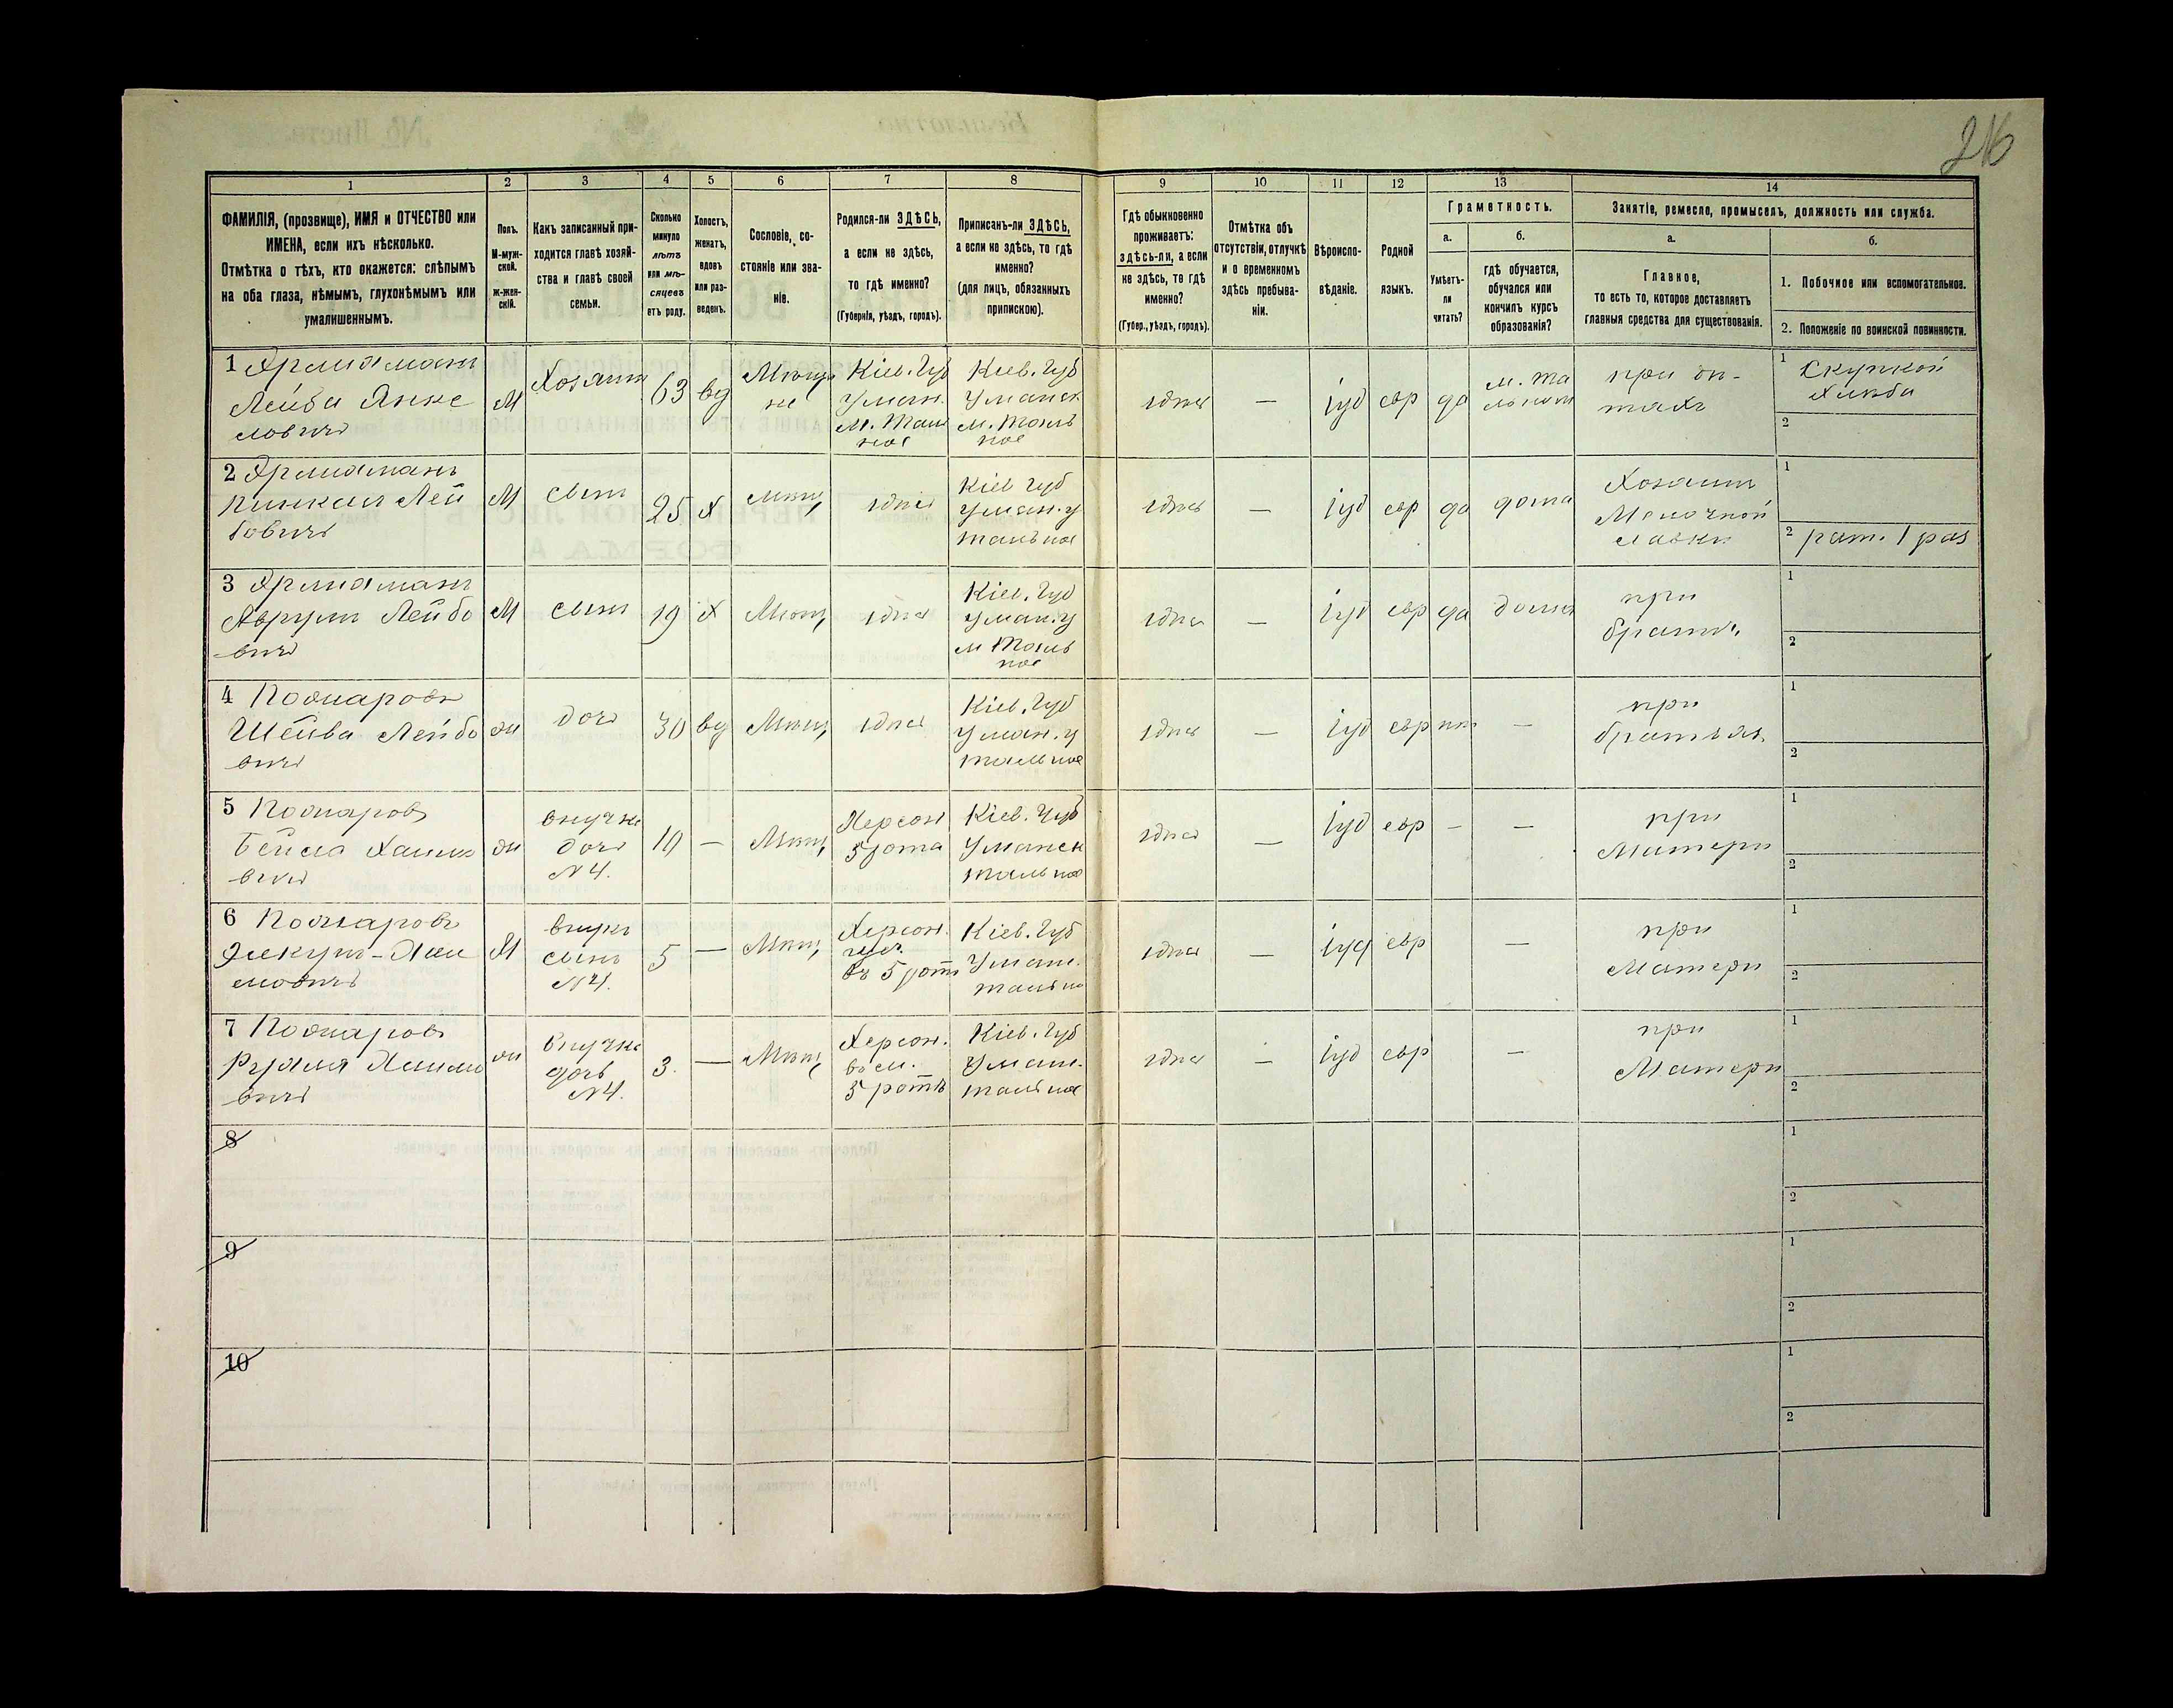 216
1
2
3
4
5
6
7
8
9
10
11
12
13
14
ФАМИЛІЯ, (прозвище), ИМЯ и ОТЧЕСТВО или
ИМЕНА, если ихъ нѣсколько.
Отмѣтка о тѣхъ, кто окажется: слѣпымъ
на оба глаза, нѣмымъ, глухонѣмымъ или
умалишеннымъ.
Полъ.
М-муж-
ской.
ж-жен-
скій.
Какъ записанный при-
ходится главѣ хозяй-
ства и главѣ своей
семьи.
Сколько
минуло
лѣтъ
или мѣ-
сяцевъ
отъ роду.
Холостъ,
женатъ,
вдовъ
или раз-
веденъ.
Сословіе, со-
стояніе или зва-
ніе.
Родился-ли ЗДѢСЬ,
а если не здѣсь,
то гдѣ именно?
(Губернія, уѣздъ, городъ).
Приписанъ-ли ЗДѢСЬ,
а если не здѣсь, то гдѣ
именно?
(для лицъ, обязанныхъ
припискою).
Гдѣ обыкновенно
проживаетъ:
здѣсь-ли, а если
не здѣсь, то гдѣ
именно?
(Губер., уѣздъ, городъ).
Отмѣтка объ
отсутствіи, отлучкѣ
и о временномъ
здѣсь пребыва-
ніи.
Вѣроиспо-
вѣданіе.
Родной
языкъ.
Граметность.
а.
Умѣетъ-
ли
читать?
б.
гдѣ обучается,
обучался или
кончилъ курсъ
образованія?
Занятіе, ремесло, промыселъ, должность или служба.
а.
Главное,
то есть то, которое доставляетъ
главныя средства для существованія.
б.
1. Побочное или вспомогательное.
2. Положеніе по воинской повинности.
1
Лейба Янке
ловичъ
М
Хозяинъ
63
вд
Мѣща
не
Кіев. Губ
Уман.
м. Таль
ное
Кіев. Губ
Уманск
м. Таль
ное
здѣсь
—
іуд
евр
да
м. Та
при
1 Скупкой
Хлѣба
2
2
Пинкас Лей
бовичъ
М
сынъ
25
х
мѣщ,
здѣсь
Кіев Губ
Уман. у
тальное
здѣсь
—
іуд
евр
да
дома
Хозяинъ
Мелочной
лавки
1
2 рат. 1 раз
3
Аврумъ Лейбо
вичъ
М
сынъ
19
х
Мѣщ,
здѣсь
Кіев. Губ
Уман. у
м Таль
ное
здѣсь
—
іуд
евр
да
дома
при
братѣ
1
2
4
Шейва Лейбо
вичъ
ж
дочь
30
вд
Мѣщ,
здѣсь
Кіев. Губ
Уман. у
тальное
здѣсь
—
іуд
евр
нѣт
—
при
братьях
1
2
5
Бейла Хаимо
вичъ
ж
внучка
дочь
N 4.
10
—
Мѣщ,
Херсон
5 рота
Кіев. Губ
Уманск
тальное
здѣсь
—
іуд
евр
—
—
при
Матери
1
2
6
мовичъ
М
внукъ
сынъ
N 4.
5
—
Мѣщ,
Херсон.
губ.
въ 5 ротѣ
Кіев. Губ
Уман.
тально
здѣсь
—
іуд
евр
—
при
Матери
1
2
7
Хаимо
вичъ
ж
внучка
дочь
N 4.
3.
—
Мѣщ,
Херсон.
5 ротѣ
Кіев. Губ
Уман.
тальное
здѣсь
—
іуд
евр
—
при
Матери
1
2
8
1
2
9
1
2
10
1
2